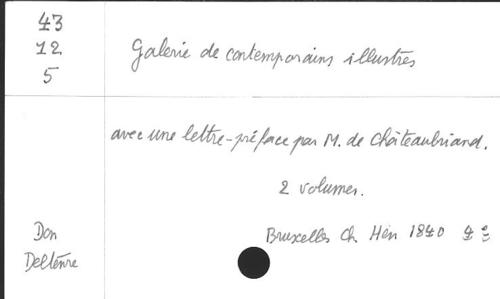 43
12
5
Galerie de contemporains illustres
avec une lettre-préface par M. de Châteaubriand.
2 volumes.
Bruxelles Ch. Hen 1840 4º
Don
Deltenre